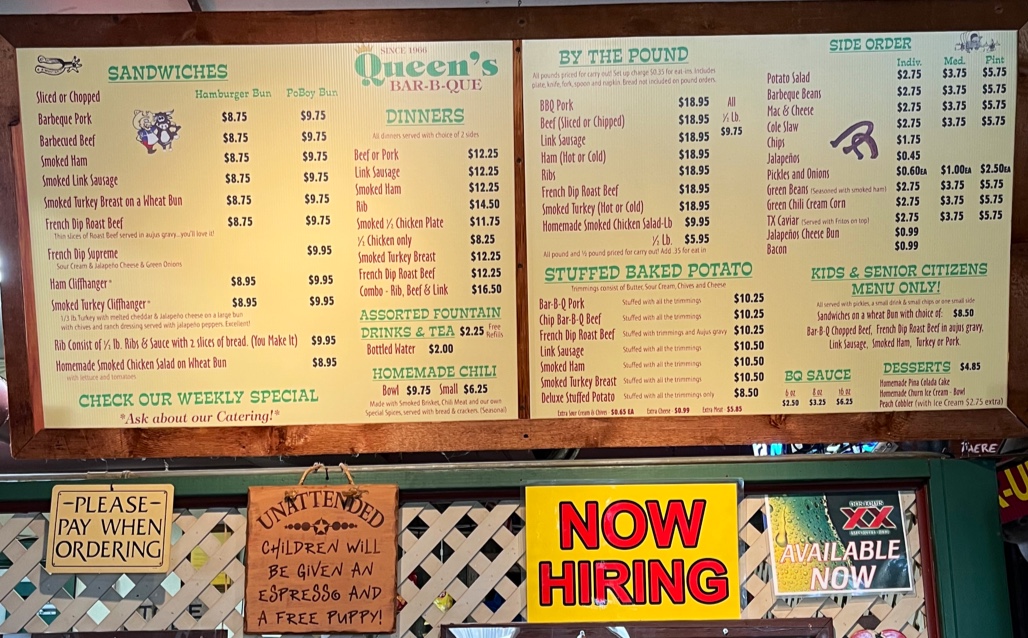 SANDWICHES
Hamburger Bun PoBoy Bun
Sliced or Chopped
Barbeque Pork $8.75 $9.75
Barbecued Beef $8.75 $9.75
Smoked Ham $8.75 $9.75
Smoked Link Sausage $8.75 $9.75
Smoked Turkey Breast on a Wheat Bun $8.75 $9.75
French Dip Roast Beef $8.75 $9.75
Thin slices of Roast Beef served in aujus gravy...you'll love it!
French Dip Supreme $9.95
Sour Cream & Jalapeño Cheese & Green Onions
Ham Cliffhanger $8.95 $9.95
Smoked Turkey Cliffhanger $8.95 $9.95
1/3 lb Turkey with melted cheddar & jalapeño cheese on a large bun
with chives and ranch dressing served with jalapeño peppers. Excellent!
Rib Consist of ½ lb. Ribs & Sauce with 2 slices of bread. (You Make It) $9.95
Homemade Smoked Chicken Salad on Wheat Bun $8.95
with lettuce and tomatoes
CHECK OUR WEEKLY SPECIAL
*Ask about our Catering!*
SINCE 1966
Queen's
BAR-B-QUE
DINNERS
All dinners served with choice of 2 sides
Beef or Pork $12.25
Link Sausage $12.25
Smoked Ham $12.25
Rib $14.50
Smoked ½ Chicken Plate $11.75
½ Chicken only $8.25
Smoked Turkey Breast $12.25
French Dip Roast Beef $12.25
Combo - Rib, Beef & Link $16.50
ASSORTED FOUNTAIN
DRINKS & TEA $2.25 Free Refills
Bottled Water $2.00
HOMEMADE CHILI
Bowl $9.75 Small $6.25
Made with Smoked Brisket, Chili Meat and our own
Special Spices, served with bread & crackers. (Seasonal)
BY THE POUND
All pounds priced for carry out! Set up charge $0.35 for eat-ins. Includes
plate, knife, fork, spoon and napkin. Bread not included on pound orders.
BBQ Pork $18.95 All
Beef (Sliced or Chipped) $18.95 ½ Lb.
Link Sausage $18.95 $9.75
Ham (Hot or Cold) $18.95
Ribs $18.95
French Dip Roast Beef $18.95
Smoked Turkey (Hot or Cold) $18.95
Homemade Smoked Chicken Salad-Lb $9.95
½ Lb. $5.95
All pound and ½ pound priced for carry out! Add .35 for eat in
STUFFED BAKED POTATO
Trimmings consist of Butter, Sour Cream, Chives and Cheese
Bar-B-Q Pork Stuffed with all the trimmings $10.25
Chip Bar-B-Q Beef Stuffed with all the trimmings $10.25
French Dip Roast Beef Stuffed with trimmings and Aujus gravy $10.25
Link Sausage Stuffed with all the trimmings $10.50
Smoked Ham Stuffed with all the trimmings $10.50
Smoked Turkey Breast Stuffed with all the trimmings $10.50
Deluxe Stuffed Potato Stuffed with all the trimmings only $8.50
Extra Sour Cream & Chives - $0.65 EA Extra Cheese $0.99 Extra Meat $5.85
SIDE ORDER
Indiv. Med. Pint
Potato Salad $2.75 $3.75 $5.75
Barbeque Beans $2.75 $3.75 $5.75
Mac & Cheese $2.75 $3.75 $5.75
Cole Slaw $2.75 $3.75 $5.75
Chips $1.75
Jalapeños $0.45
Pickles and Onions $0.60EA $1.00EA $2.50EA
Green Beans (Seasoned with smoked ham) $2.75 $3.75 $5.75
Green Chili Cream Corn $2.75 $3.75 $5.75
TX Caviar (Served with Fritos on top) $2.75 $3.75 $5.75
Jalapeños Cheese Bun $0.99
Bacon $0.99
KIDS & SENIOR CITIZENS
MENU ONLY!
All served with pickles, a small drink & small chips or one small side
Sandwiches on a wheat Bun with choice of: $8.50
Bar-B-Q Chopped Beef, French Dip Roast Beef in aujus gravy,
Link Sausage, Smoked Ham, Turkey or Pork.
BQ SAUCE
6 oz 8 oz 16 oz
$2.50 $3.25 $6.25
DESSERTS $4.85
Homemade Pina Colada Cake
Homemade Churn Ice Cream - Bowl
Peach Cobbler (with Ice Cream $2.75 extra)
-PLEASE-
PAY WHEN
ORDERING
UNATTENDED
CHILDREN WILL
BE GIVEN AN
ESPRESSO AND
A FREE PUPPY!
NOW
HIRING
DOS EQUIS
XX
AVAILABLE
NOW